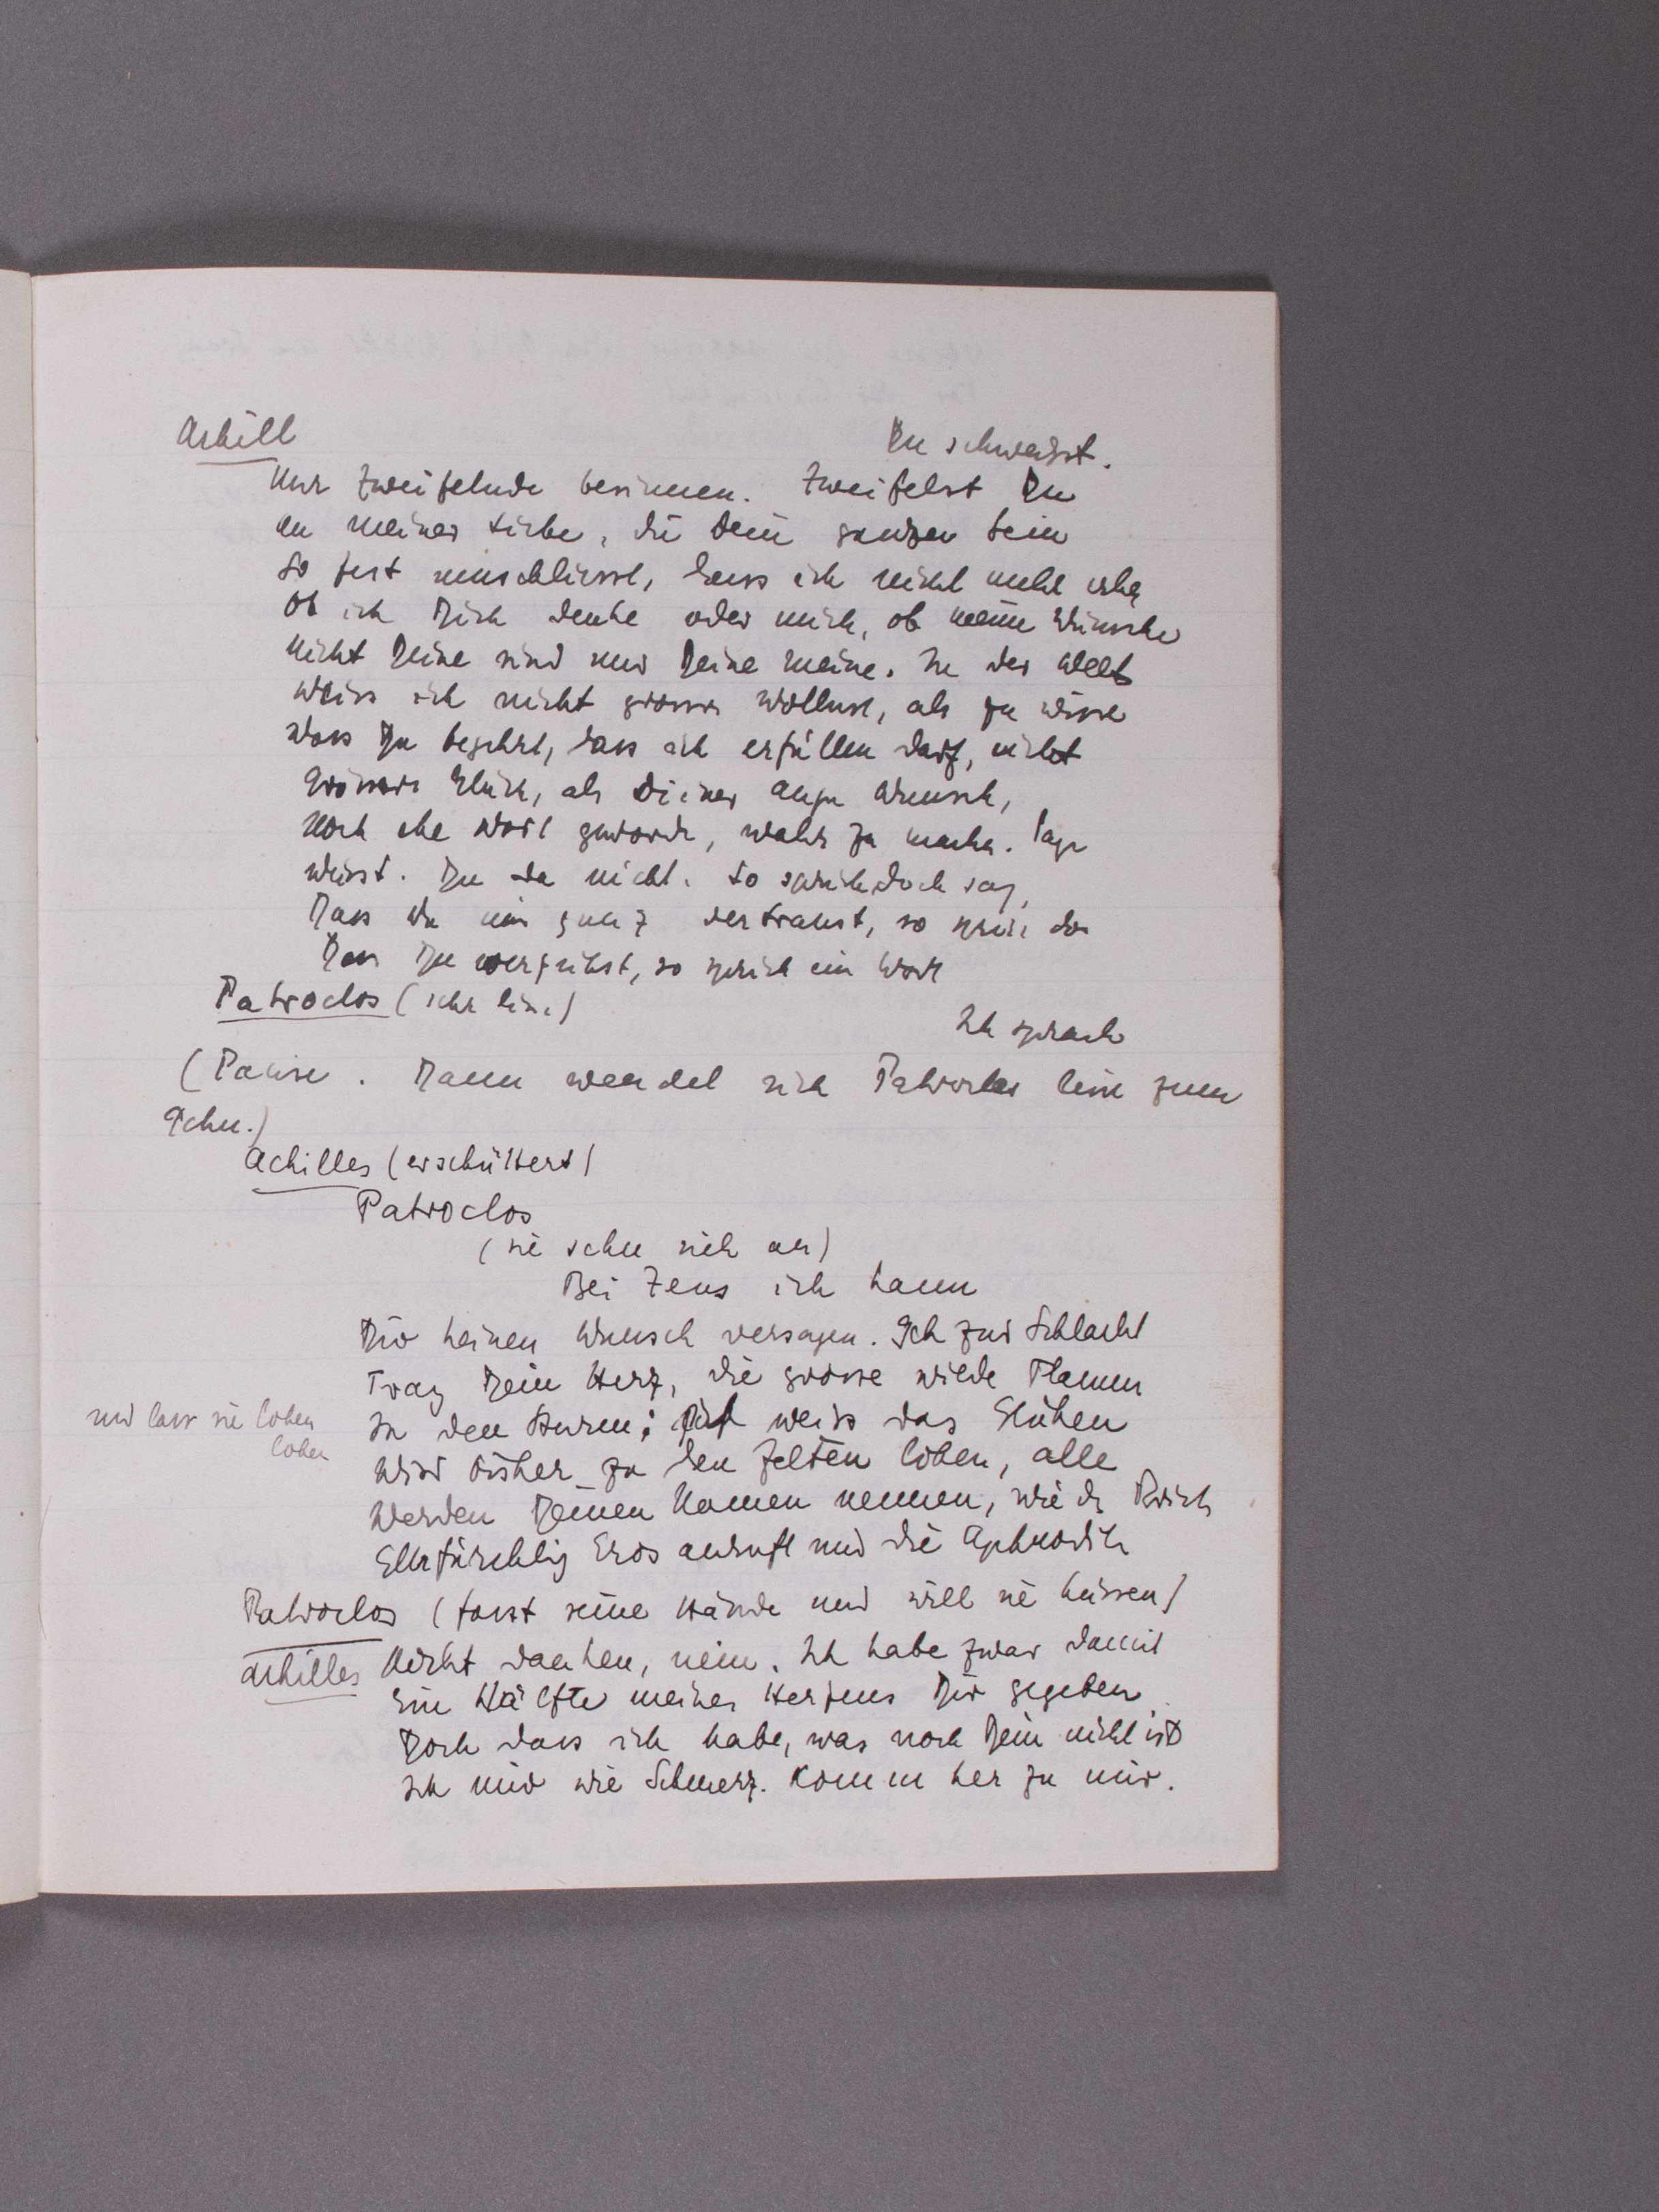 Achill
Du schweigst.
Nur Zweifelnde besinnen. Zweifelst Du
an meiner Liebe, die Dein ganzes Sein
So fest umschliesst, dass ich nicht mehr
Ob ich Dich denke oder mich, ob meine Wünsche
Nicht Deine sind und Deine meine. In der Welt
Weiss ich nicht grössre Wollust, als zu wissen
Was Du begehrst, das ich erfüllen darf, nicht
Grössres Glück, als Deiner Augen Wunsch,
Noch ehe Wort geworden, wahr zu machen. Sage
Weisst Du da nicht. So sprich doch sag,
Dass Du mir ganz vertraust, so sprich doch
Dass Du verzeihst, so sprich ein Wort
Patroclos (sehr leise)
Ich sprach
(Pause. Dann wendet sich Patroclos leise zum
Gehn.)
Achilles (erschüttert)
Patroclos
(sie sehn sich an)
Bei Zeus ich kann
Dir keinen Wunsch versagen. Geh zur Schlacht
Trag Dein Herz, die grosse wilde Flamme
In den Sturm; Ich weiss das Glühen
und lass sie lohen
lohen
Wird bisher zu den Zelten lohen, alle
Werden Deinen Namen nennen, wie der Grieche
Ehrfürchtig Eros anruft und die Aphrodite
Patroclos (fasst seine Hände und will sie küssen)
Achilles Nicht danken, nein. Ich habe zwar damit
Eine Hälfte meines Herzens Dir gegeben
Doch dass ich habe, was noch Dein nicht ist
Ist mir wie Schmerz. Komm her zu mir.